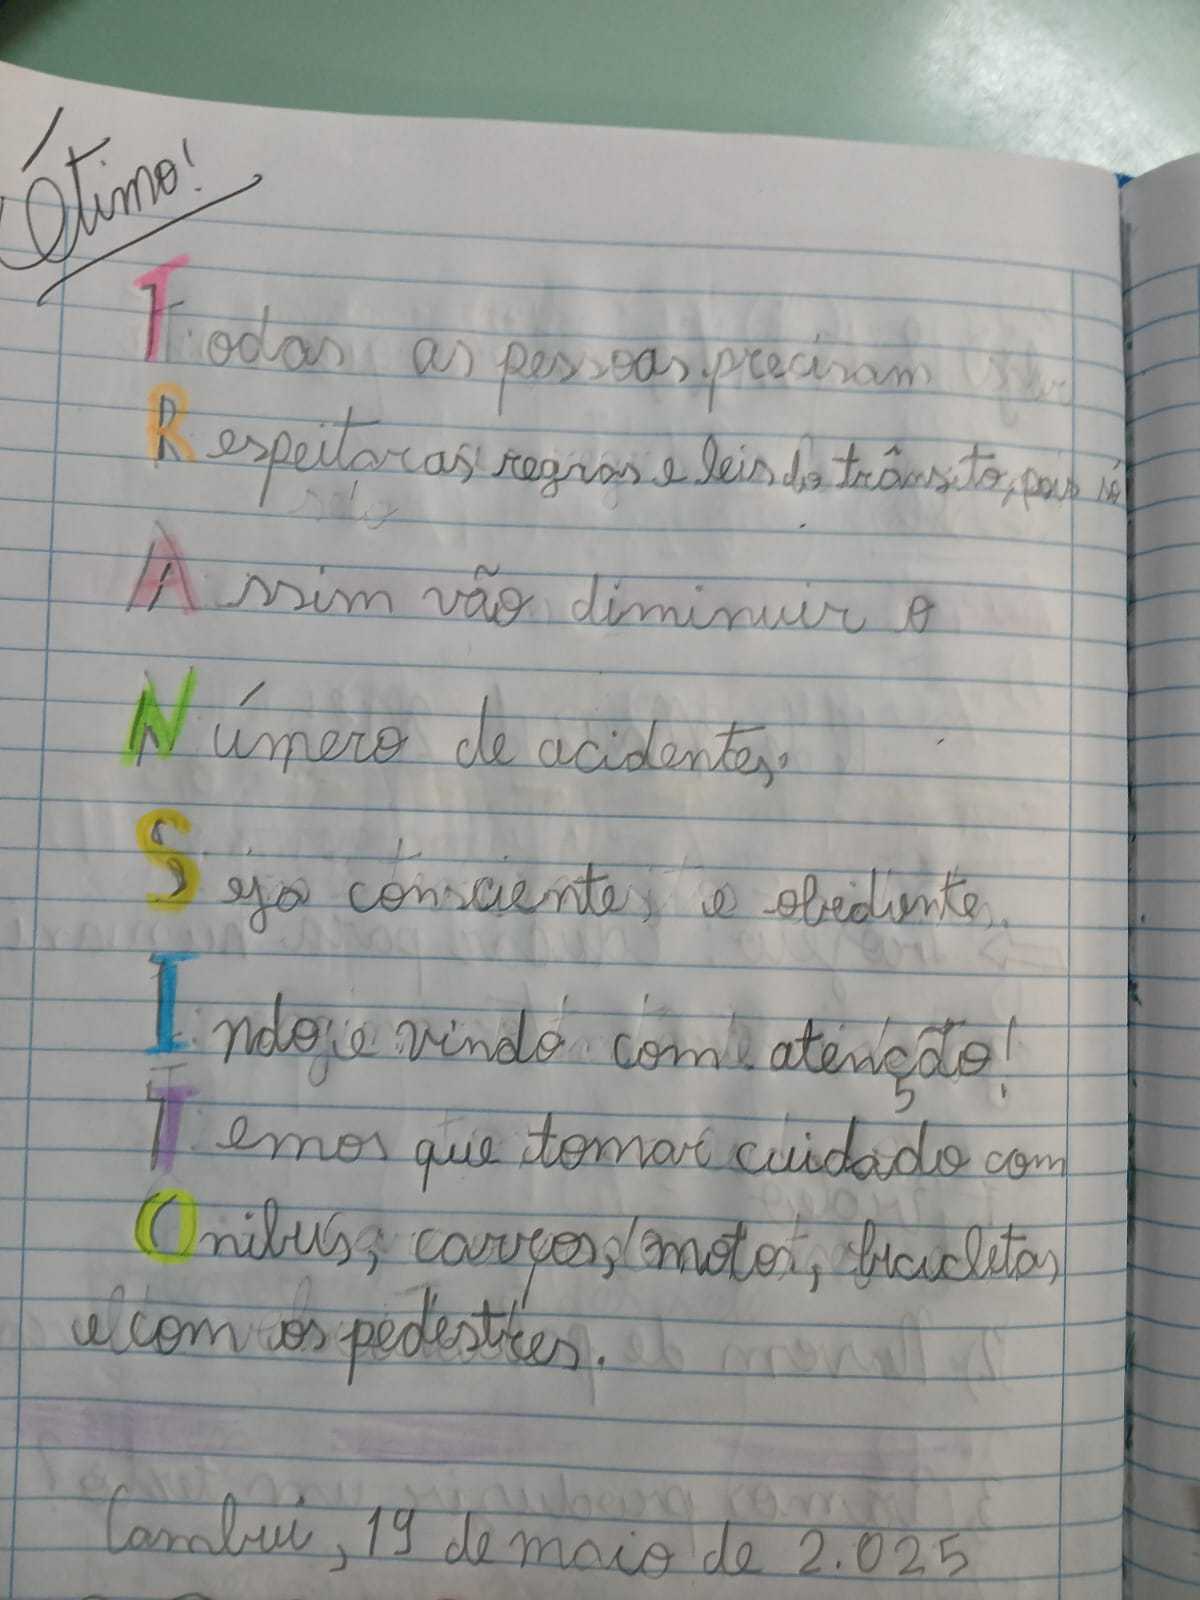 Ótimo!
Todas as pessoas precisam
Respeitar as regras e leis do trânsito, pois só
Assim vão diminuir o
Número de acidentes.
Seja consciente e obediente.
Indo e vindo com atenção!
Temos que tomar cuidado com
Onibus, carros, motos, bicicletas
e com os pedestres.
Cambuí, 19 de maio de 2.025